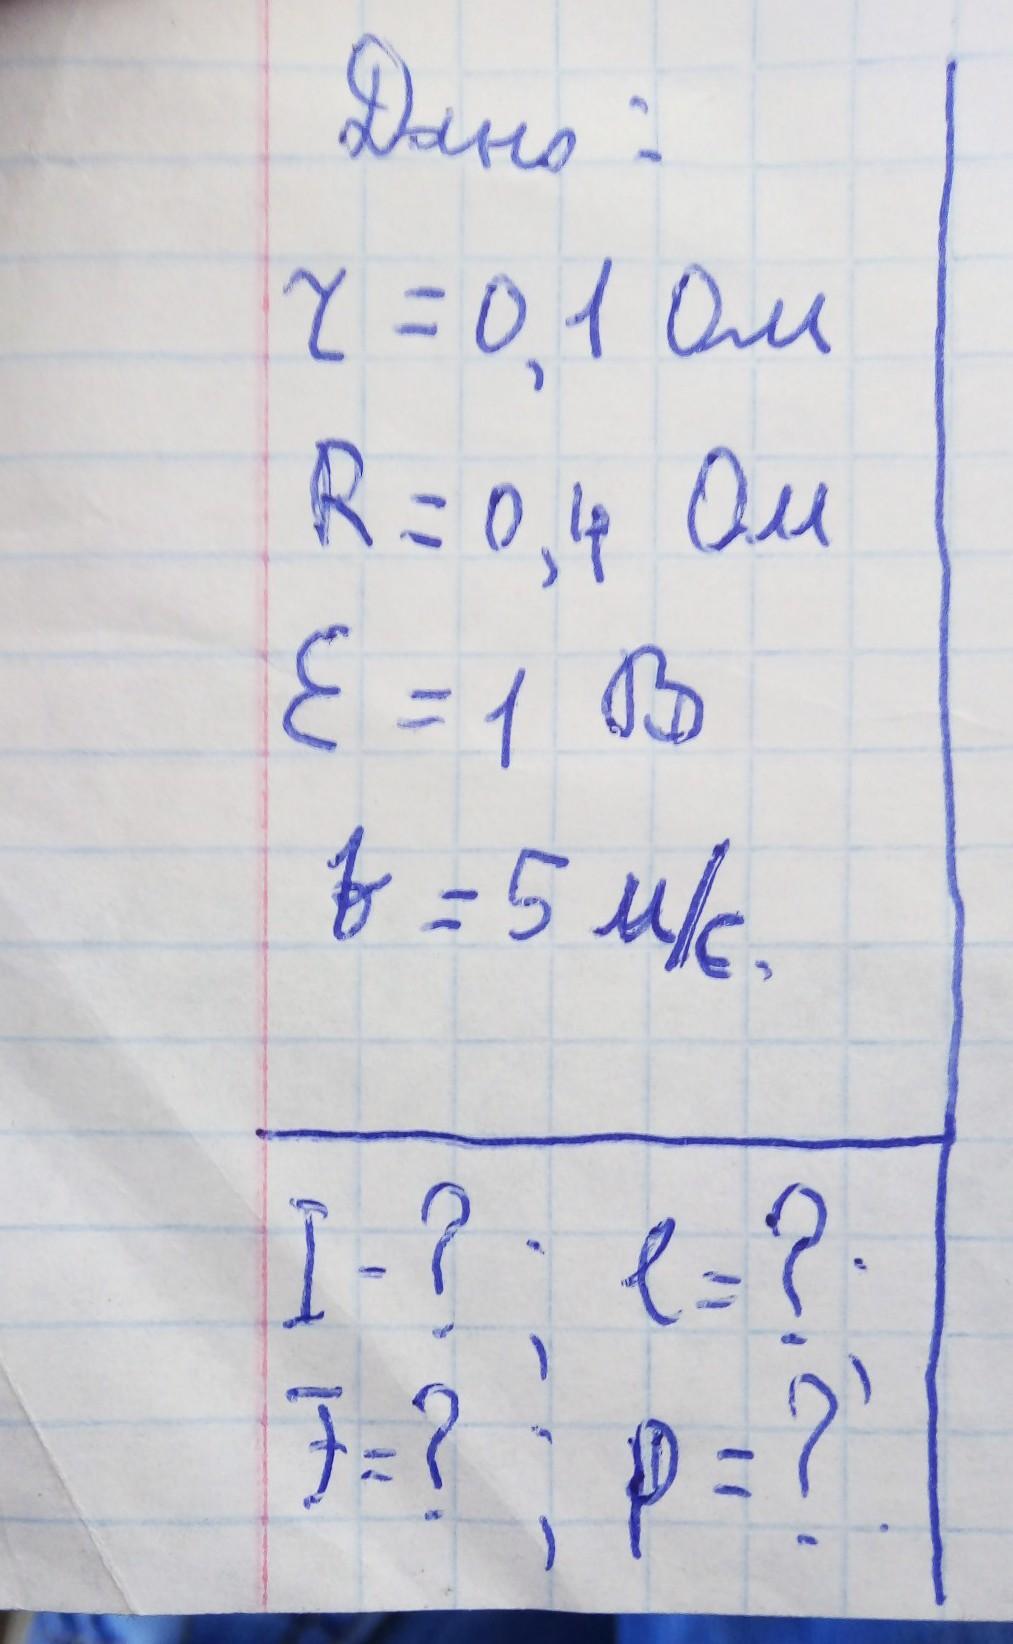 Дано:
r = 0,1 Ом
R = 0,4 Ом
Ɛ = 1 В
v = 5 м/с.
I - ? ; l = ? ;
F = ? ; p = ? .